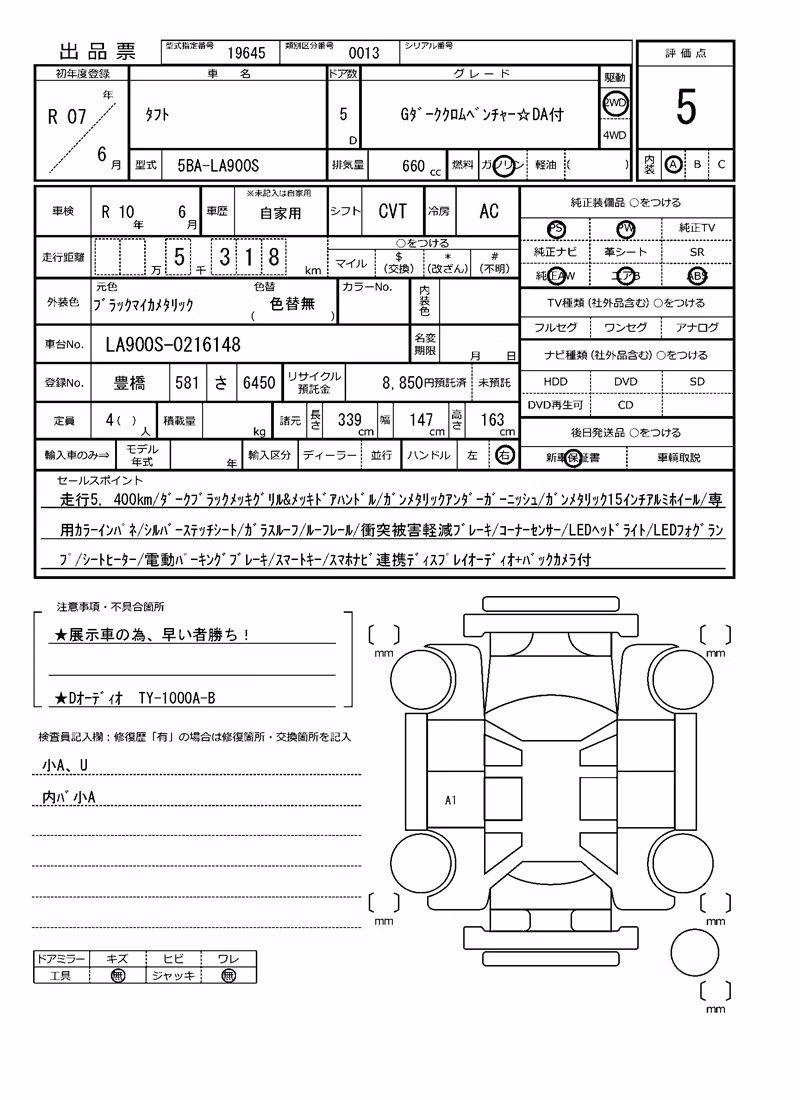 出品票 型式指定番号 19645 類別区分番号 0013 シリアル番号 評価点
初年度登録 車名 ドア数 グレード 駆動
R 07 年 6 月 タフト 5 D Gﾀﾞｰｸｸﾛﾑﾍﾞﾝﾁｬｰ☆DA付 2WD 4WD 5
型式 5BA-LA900S 排気量 660 cc 燃料 ガソリン 軽油 ( ) 内装 A B C
車検 R 10 年 6 月 車歴 ※未記入は自家用 自家用 シフト CVT 冷房 AC 純正装備品 ○をつける
PS PW 純正TV
走行距離 万 5 千 3 1 8 km ○をつける マイル $ (交換) * (改ざん) # (不明)
純正ナビ 革シート SR
純正AW エアB ABS
外装色 元色 ﾌﾞﾗｯｸﾏｲｶﾒﾀﾘｯｸ 色替 ( 色替無 ) カラーNo. 内装色
TV種類 (社外品含む) ○をつける
フルセグ ワンセグ アナログ
車台No. LA900S-0216148 名変期限 月 日
ナビ種類 (社外品含む) ○をつける
登録No. 豊橋 581 さ 6450 リサイクル預託金 8,850円預託済 未預託
HDD DVD SD
DVD再生可 CD
定員 4 ( ) 人 積載量 kg 諸元 長さ 339 cm 幅 147 cm 高さ 163 cm
後日発送品 ○をつける
輸入車のみ⇒ モデル年式 年 輸入区分 ディーラー 並行 ハンドル 左 右
新車保証書 車輌取説
セールスポイント
走行5,400km/ﾀﾞｰｸﾌﾞﾗｯｸﾒｯｷｸﾞﾘﾙ&ﾒｯｷﾄﾞｱﾊﾝﾄﾞﾙ/ｶﾞﾝﾒﾀﾘｯｸｱﾝﾀﾞｰｶﾞｰﾆｯｼｭ/ｶﾞﾝﾒﾀﾘｯｸ15ｲﾝﾁｱﾙﾐﾎｲｰﾙ/専
用ｶﾗｰｲﾝﾊﾟﾈ/ｼﾙﾊﾞｰｽﾃｯﾁｼｰﾄ/ｶﾞﾗｽﾙｰﾌ/ﾙｰﾌﾚｰﾙ/衝突被害軽減ﾌﾞﾚｰｷ/ｺｰﾅｰｾﾝｻｰ/LEDﾍｯﾄﾞﾗｲﾄ/LEDﾌｫｸﾞﾗﾝ
ﾌﾟ/ｼｰﾄﾋｰﾀｰ/電動ﾊﾟｰｷﾝｸﾞﾌﾞﾚｰｷ/ｽﾏｰﾄｷｰ/ｽﾏﾎﾅﾋﾞ連携ﾃﾞｨｽﾌﾟﾚｲｵｰﾃﾞｨｵ+ﾊﾞｯｸｶﾒﾗ付
注意事項・不具合箇所
★展示車の為、早い者勝ち！
★Dｵｰﾃﾞｨｵ TY-1000A-B
検査員記入欄：修復歴「有」の場合は修復箇所・交換箇所を記入
小A、U
内ﾊﾞ小A
A1
mm
mm
mm
mm
mm
ドアミラー キズ ヒビ ワレ
工具 無 ジャッキ 無